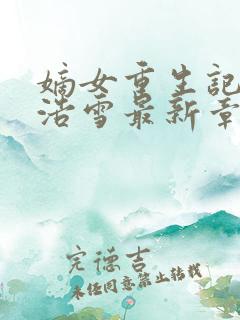 嫡女重生記
浩雪最新章
完德吉
未经同意禁止转载